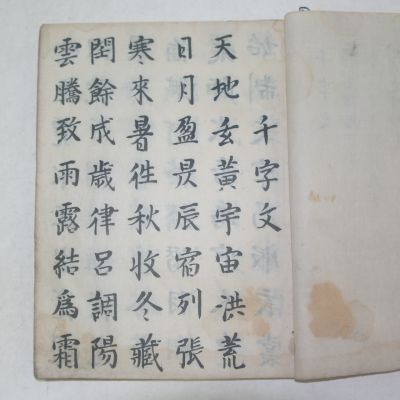 千字文
天地玄黃宇宙洪荒
日月盈昃辰宿列張
寒來暑徃秋收冬藏
閏餘成歲律呂調陽
雲騰致雨露結爲霜